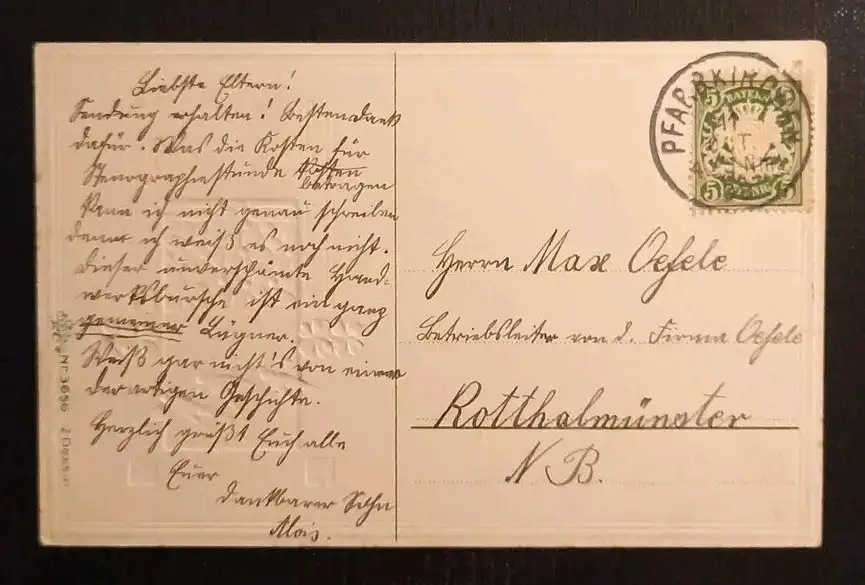 Liebste Eltern!
Sendung erhalten! Besten Dank
dafür. Was die Kosten für
Stenographiestunde Kosten
betragen
kann ich nicht genau schreiben
denn ich weiß es noch nicht.
Dieser unverschämte Hand-
werksbursche ist ein ganz
gemeiner Lügner.
Weiß gar nicht's von einer
derartigen Geschichte.
Herzlich grüßt Euch alle
Euer
dankbarer Sohn
Alois.
PFARRKIRCHEN
BAYERN
5 5
PFENNIG
5 5
Herrn Max Oefele
Betriebsleiter von d. Firma Oefele
Rotthalmünster
N B.
Nr. 3656